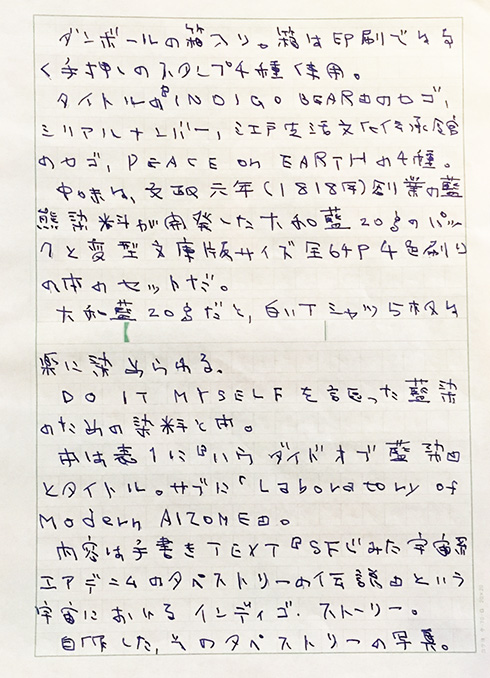 ダンボールの箱入り。箱は印刷でなな
く手押しのスタンプ4種使用。
タイトル『INDIGO BEAR』のロゴ、
シリアルナンバー、江戸生活文化伝承館
のロゴ、PEACE on EARTHの4種。
中味は、文政元年(1818年)創業の藍
熊染料が開発した大和藍20gのパッ
クと変型文庫版サイズ全64P4色刷り
の本のセットだ。
大和藍20gだと、白いTシャツ5枚は
楽に染められる。
DO IT MYSELFを言った藍染
のための染料と本。
本は表1に『 ダイドオブ藍染』
とタイトル。サブに「Laboratory of
Modern AIZOME』。
内容は手書きTEXT『SFじみた宇宙系
エアデニムのタペストリーの伝説』という
宇宙におけるインディゴ・ストーリー。
自作した、そのタペストリーの写真。